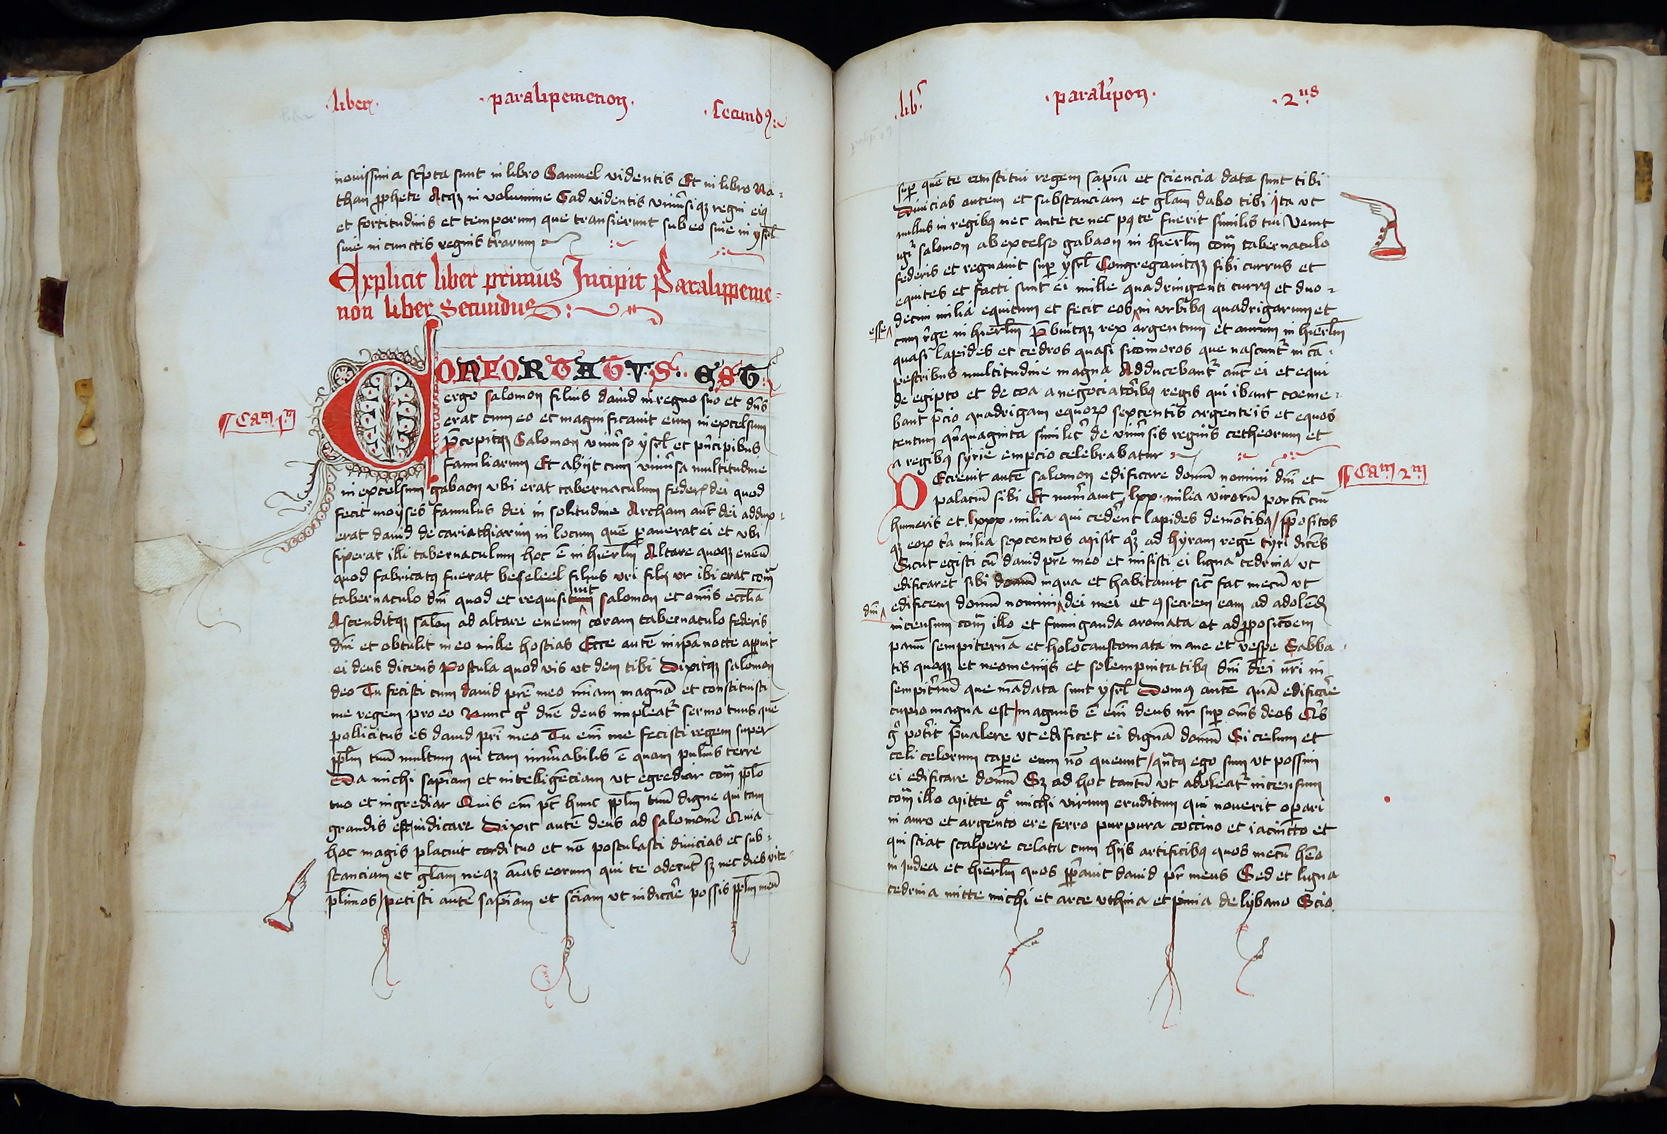 ·liber· ·paralipemenon· ·Secundꝰ·
nouissima sc̄pta sunt in libro Samuel videntis Et in libro Na
than ꝓphete Atqꝫ in volumine Gad videntis vniūsiqꝫ regni eiꝰ
et fortitudinis et temporum que transierunt sub eo siue in ysrl̄
siue in cunctis regnis tr̄arum
Explicit liber primus Incipit Paralippeme=
non liber Secundus
CONFORTATVS EST
Cam̄ 1m̄
ergo Salomon filius dauid in regno suo et dn̄s
erat cum eo et magnificauit eum in excelsum
P̄cepitqꝫ Salomon vniūso ysrl̄ et pn̄cipibus
familiarum Et abijt cum vniūsa multitudine
in excelsum gabaon vbi erat tabernaculum federꝭ dei quod
fecit moyses famulus dei in solitudine Archam aut̄ dei addux
erat dauid de cariathiarim in locum quē p̄auerat ei et vbi
fixerat illi tabernaculum hoc ē in hierl̄m Altare quoqꝫ eneū
quod fabricatꝰ fuerat beseleel filius vri filij vr ibi erat corā
tabernaculo dn̄i quod et requisiuit salomon et omnis eccl̄ia
Ascenditqꝫ salon̄ ad altare eneum coram tabernaculo federis
dn̄i et obtulit in eo mille hostias Ecce autē in ip̄a nocte apꝑuit
ei deus dicens Postula quod vis vt dem tibi Dixitqꝫ salomon
deo Tu fecisti cum dauid prē meo m̄iam magnā et constituisti
me regem pro eo Nunc gͦ dn̄e deus impleatr̄ sermo tuus quē
pollicitus es dauid pr̄i meo Tu em̄ me fecisti regem super
ppl̄m tuū multum qui tam inn̄uabilis ē quam puluis terre
Da michi sapīam et intelligēciam vt egrediar corā ppl̄o
tuo et ingrediar Quis em̄ pt̄ hunc ppl̄m tuū digne qui tam
grandis est iudicare Dixit autē deus ad Salomonē Quia
hoc magis placuit cordi tuo et nō postulasti diuicias et sub=
stanciam et gl̄am neqꝫ aīas eorum qui te oderūt sꝫ nec dies vite
plimos petisti autē sapīam et sc̄iam vt iudicāe possis ppl̄m meū
·lib̄· ·paralip̄on· ·2us
sup̄ quē te constitui regem sapīa et sciencia data sunt tibi
Diuicias autem et substanciam et gl̄am dabo tibi ita vt
nullus in regibꝰ nec ante te nec pꝰ te fuerit similis tui Venit
igr̄ salomon ab excelso gabaon in hierl̄m corā tabernaculo
federis et regnauit sup̄ ysrl̄ Congregauitqꝫ sibi currus et
equites et facti sunt ei mille quadringenti currꝰ et duo=
decim milia equitum et fecit eos in vrbibꝰ quadrigarum et
esse
cum rēge in hierl̄m P̄buitqꝫ rex argentum et aurum in hierl̄m
quasi lapides et cedros quasi sicomoros que nascunt̄ in cā=
pestribus multitudine magna Adducebant̄ aut̄ ei et equi
de egipto et de coa a negociatoribꝰ regis qui ibant et coeme=
bant p̄cio quadrigam equoꝝ sexcentis argenteis et equos
tentum qn̄quaginta similit̄ de vniūsis regnis cetheorum et
a regibꝰ syrie empcio celebrabatur
Cam̄ 2m̄
DEcreuit autē Salomon edificare domū nomini dn̄i et
palacium sibi Et nūm̄auit ·lxx· milia virorū portāciū
humeris et lxxx milia qui cedēnt lapides de mōtibꝰ p̄positos
qꝫ eoꝝ tr̄a milia sexcentos Misit qꝫ ad hyram regē tyri dicēs
Sicut egisti cū dauid prē meo et misisti ei ligna cedrina vt
edificaret sibi domū in qua et habitauit sic fac mecū vt
dn̄i
edificem domū nomini dei mei et ꝯsecrem eam ad adolend̄
incensum corā illo et fumiganda aromata et ad ꝓposicōem
panū sempiternā et holocaustomata mane et vespe Sabba
tis quoqꝫ et neomenijs et solempnitatibꝰ dn̄i dei nr̄i in
sempit̄nū que mādata sunt ysrl̄ Domꝰ autē quā edificāe
cupio magna est magnus ē em̄ deus nr̄ sup̄ om̄s deos Qis
gͦ pot̄it p̄ualere vt edificet ei dignā domū Si celum et
celi celorum cape eum nō queunt quātꝰ ego sum vt possim
ei edificare domū Sꝫ ad hoc tantū vt adoleatr̄ incensum
corā illo Mitte gͦ michi virum eruditum qui nouerit operari
in auro et argento ere ferro purpura coccino et iacincto et
qui sciat scalpere celata cum hijs artificibꝰ quos mecū hēo
in iudea et hierl̄m quos p̄pauit dauid pr̄ meus Sed et ligna
cedrina mitte michi et arceuthina et pinia de lybano Scio